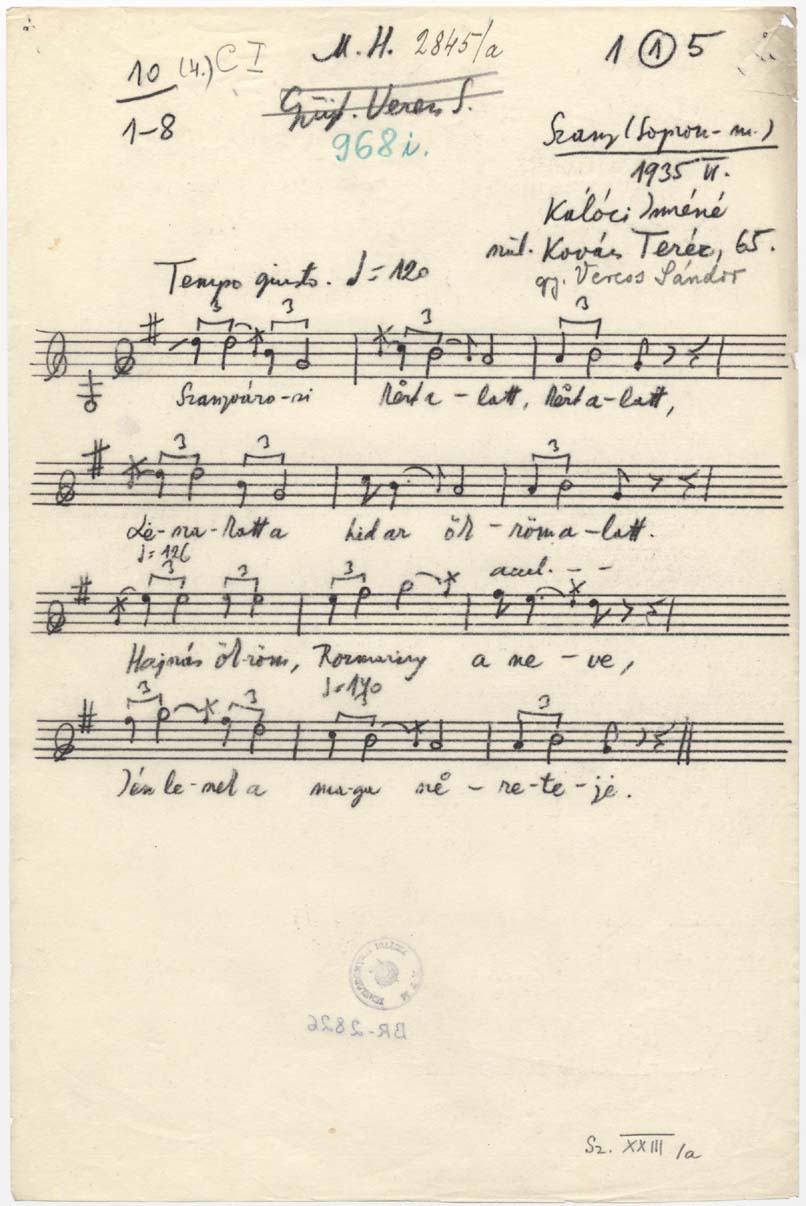 10 (4.) C I
1-8
M. H. 2845/a
Gyüjt. Veress S.
968i.
1 1 5
Szany (Sopron-m.)
1935 VI.
Kálóci Imréné
szül. Kovács Teréz, 65.
gy. Veress Sándor
Tempo giusto. ♩=120
3 3 3 3
Szanyváro-si kërt a-latt, kërt a-latt,
3 3 3
Lë-sza-katt a híd az ök-röm a-latt.
♩=126
accel. - -
3 3 3
Hajnás ökröm, Rozmaring a ne-ve,
♩=140
3 3 3 3
a maga re-te-je.
BR-2826
Sz. XXIII/a